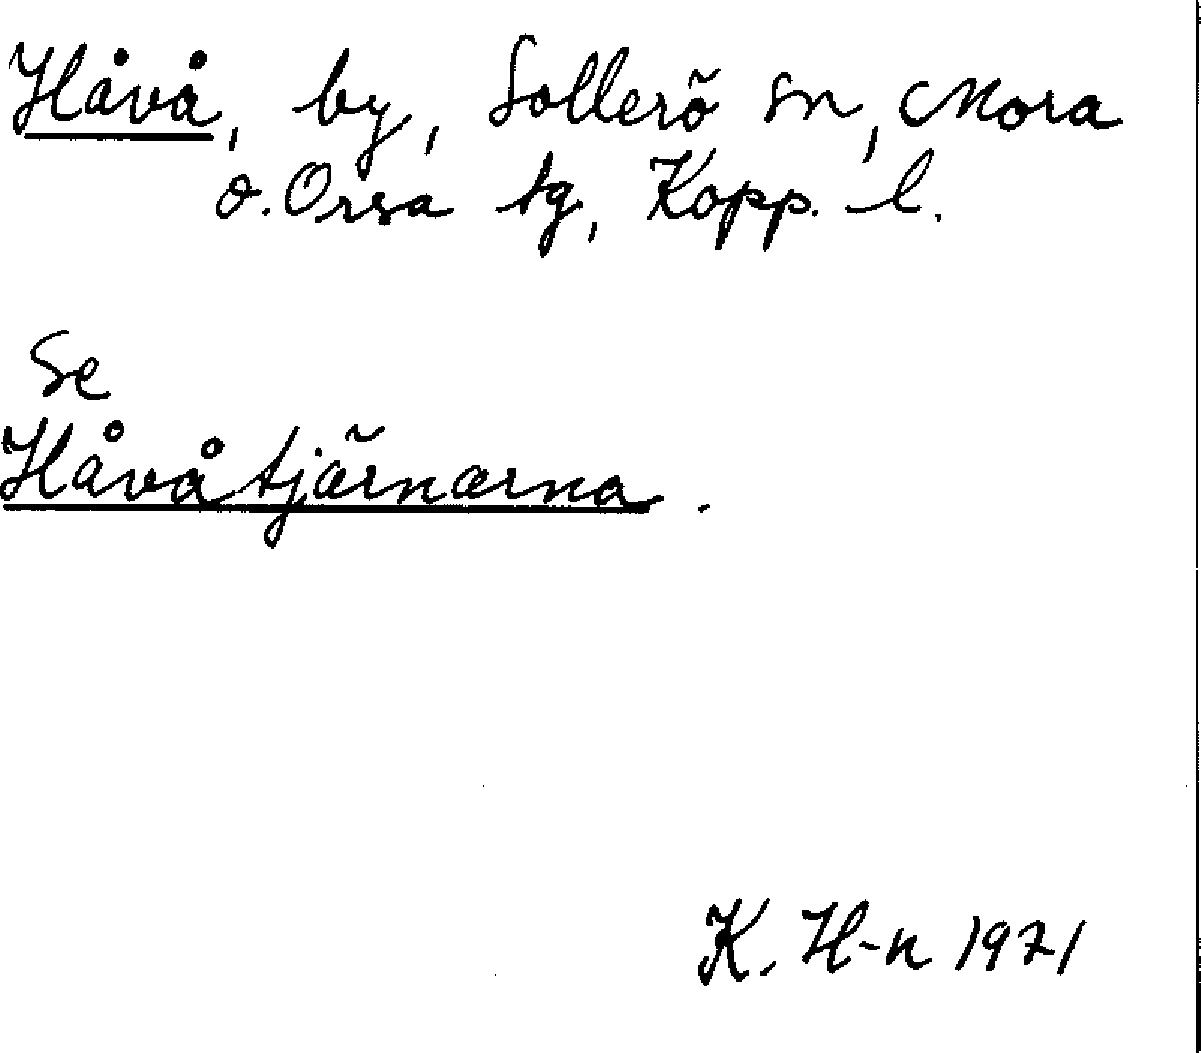 Håvå, by, Sollerö sn, Mora
o. Orsa tg, Kopp. l.
Se
Håvåtjärnarna.
K. H-n 1971